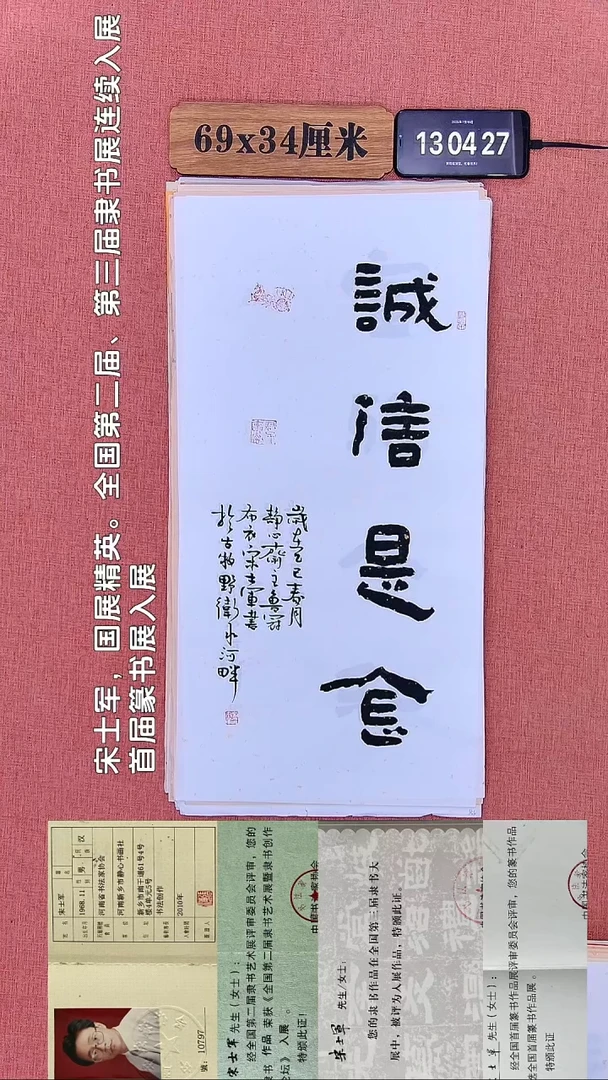 宋士军，国展精英。全国第二届、第三届隶书展连续入展
首届篆书展入展
69x34厘米
13 04 27
誠信是金
歲在乙巳春月
布衣宋士軍書
於古牧野衛水河畔
宋士军
1968.11 男 汉
河南省书法家协会
河南新乡市静心书画社
新乡市南干道61号4号
楼4单元5号
书法创作
2010年
號：10797
宋士军 先生（女士）：
经全国第二届隶书艺术展评审委员会评审，您的
隶书 作品 荣获《全国第二届隶书艺术展暨隶书创作
论坛》入展 。
特颁此证！
宋士军 先生/女士：
您的隶书作品在全国第三届隶书大
展中，被评为入展作品，特颁此证。
士军 先生（女士）：
经全国首届篆书作品展评审委员会评审，您的篆书作品，
全国首届篆书作品展 。
特颁此证